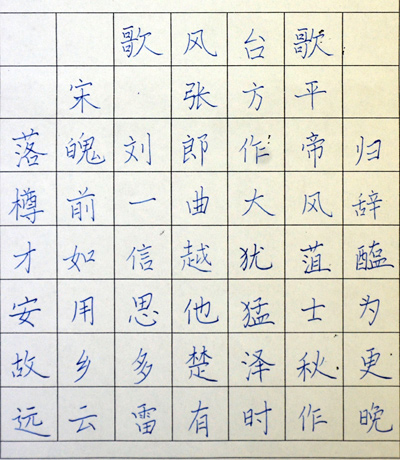 歌风台歌
宋 张方平
落魄刘郎作帝归
樽前一曲大风辞
才如信越犹菹醢
安用思他猛士为
故乡多楚泽秋更
远云雷有时作晚